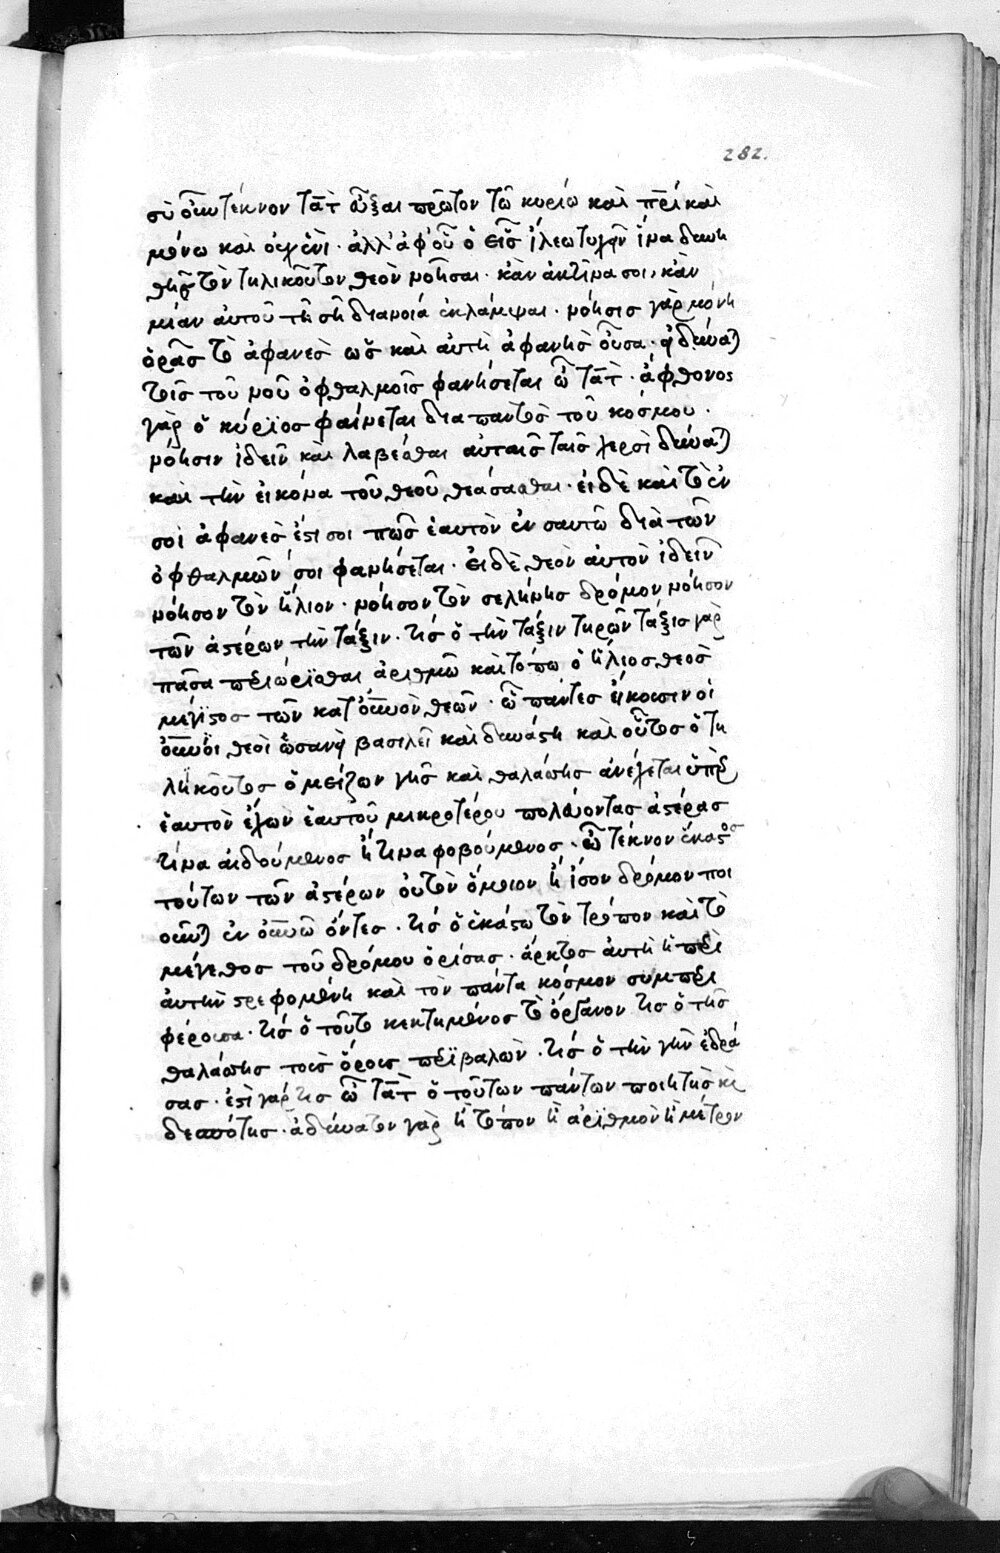 282.
σὺ οὖν τέκνον τὰτ εὖξαι πρῶτον τῶ κυρίω καὶ πρὶ καὶ
μόνω καὶ οὐχ ἑνὶ. ἀλλ' ἀφ' οὗ ὁ εἷς ἵλεω τυχεῖν ἵνα δυνη
θῆς τὸν τηλικοῦτον θεὸν νοῆσαι. κἂν ἀκτῖνα σοι, κἂν
μίαν αὐτοῦ τῆ σῆ διανοία ἐκλάμψαι. νόησις γὰρ μόνη
ὁρᾶ τὸ ἀφανὲς ὡς καὶ αὐτὴ ἀφανὴς οὖσα. εἰ δύνα)
τοῖς τοῦ νοῦ ὀφθαλμοῖς φανήσεται ὦ τὰτ. ἄφθονος
γὰρ ὁ κύριος φαίνεται δια παντὸς τοῦ κόσμου.
νόησιν ἰδεῖν καὶ λαβέσθαι αὐταῖς ταῖς χερσὶ δύνα)
καὶ τὴν εἰκόνα τοῦ θεοῦ θεάσασθαι. εἰ δὲ καὶ τὸ ἐν
σοὶ ἀφανές ἐστί σοι πῶς ἑαυτὸν ἐν σαυτῶ διὰ τῶν
ὀφθαλμῶν σοι φανήσεται. εἰ δὲ θεὸν αὐτὸν ἰδεῖν
νόησον τὸν ἥλιον. νόησον τὸν σελήνης δρόμον νόησον
τῶν ἀστέρων τὴν τάξιν. τίς ὁ τὴν τάξιν τηρῶν τάξις γὰρ
πᾶσα περιώρισθαι ἀριθμῶ καὶ τόπω ὁ ἥλιος θεὸς
μέγιστος τῶν κατ' οὐνὸν θεῶν. ὧ πάντες εἴκουσιν οἱ
οὐνοι θεοὶ ὡσανεὶ βασιλεῖ καὶ δυνάστη καὶ οὗτος ὁ τη
λικοῦτος ὁ μείζων γῆς καὶ θαλάττης ἀνέχεται ὑπὲρ
ἑαυτὸν ἔχων ἑαυτοῦ μικροτέρου πολύοντας ἀστέρας
τίνα αἰδούμενος ἢ τίνα φοβούμενος. ὦ τέκνον ἕκαστος
τούτων τῶν ἀστέρων οὐ τὸν ὅμοιον ἢ ἴσον δρόμον ποι
οῦν) ἐν οὐνῶ ὄντες. τίς ὁ ἑκάστω τὸν τρόπον καὶ τὸ
μέγεθος τοῦ δρόμου ὁρίσας. ἄρκτος αὐτὴ ἡ περὶ
αὐτὴν στρεφομένη καὶ τὸν πάντα κόσμον συμπερι
φέρουσα. τίς ὁ τοῦτο κεκτημένος τὸ ὄργανον τίς ὁ τῆς
θαλάττης τοὺς ὅρους περιβαλὼν. τίς ὁ τὴν γῆν ἑδρά
σας. ἐστὶ γάρ τις ὦ τὰτ ὁ τούτων πάντων ποιητὴς κὶ
δεσπότης. ἀδύνατον γὰρ ἢ τόπον ἢ ἀριθμὸν ἢ μέτρον